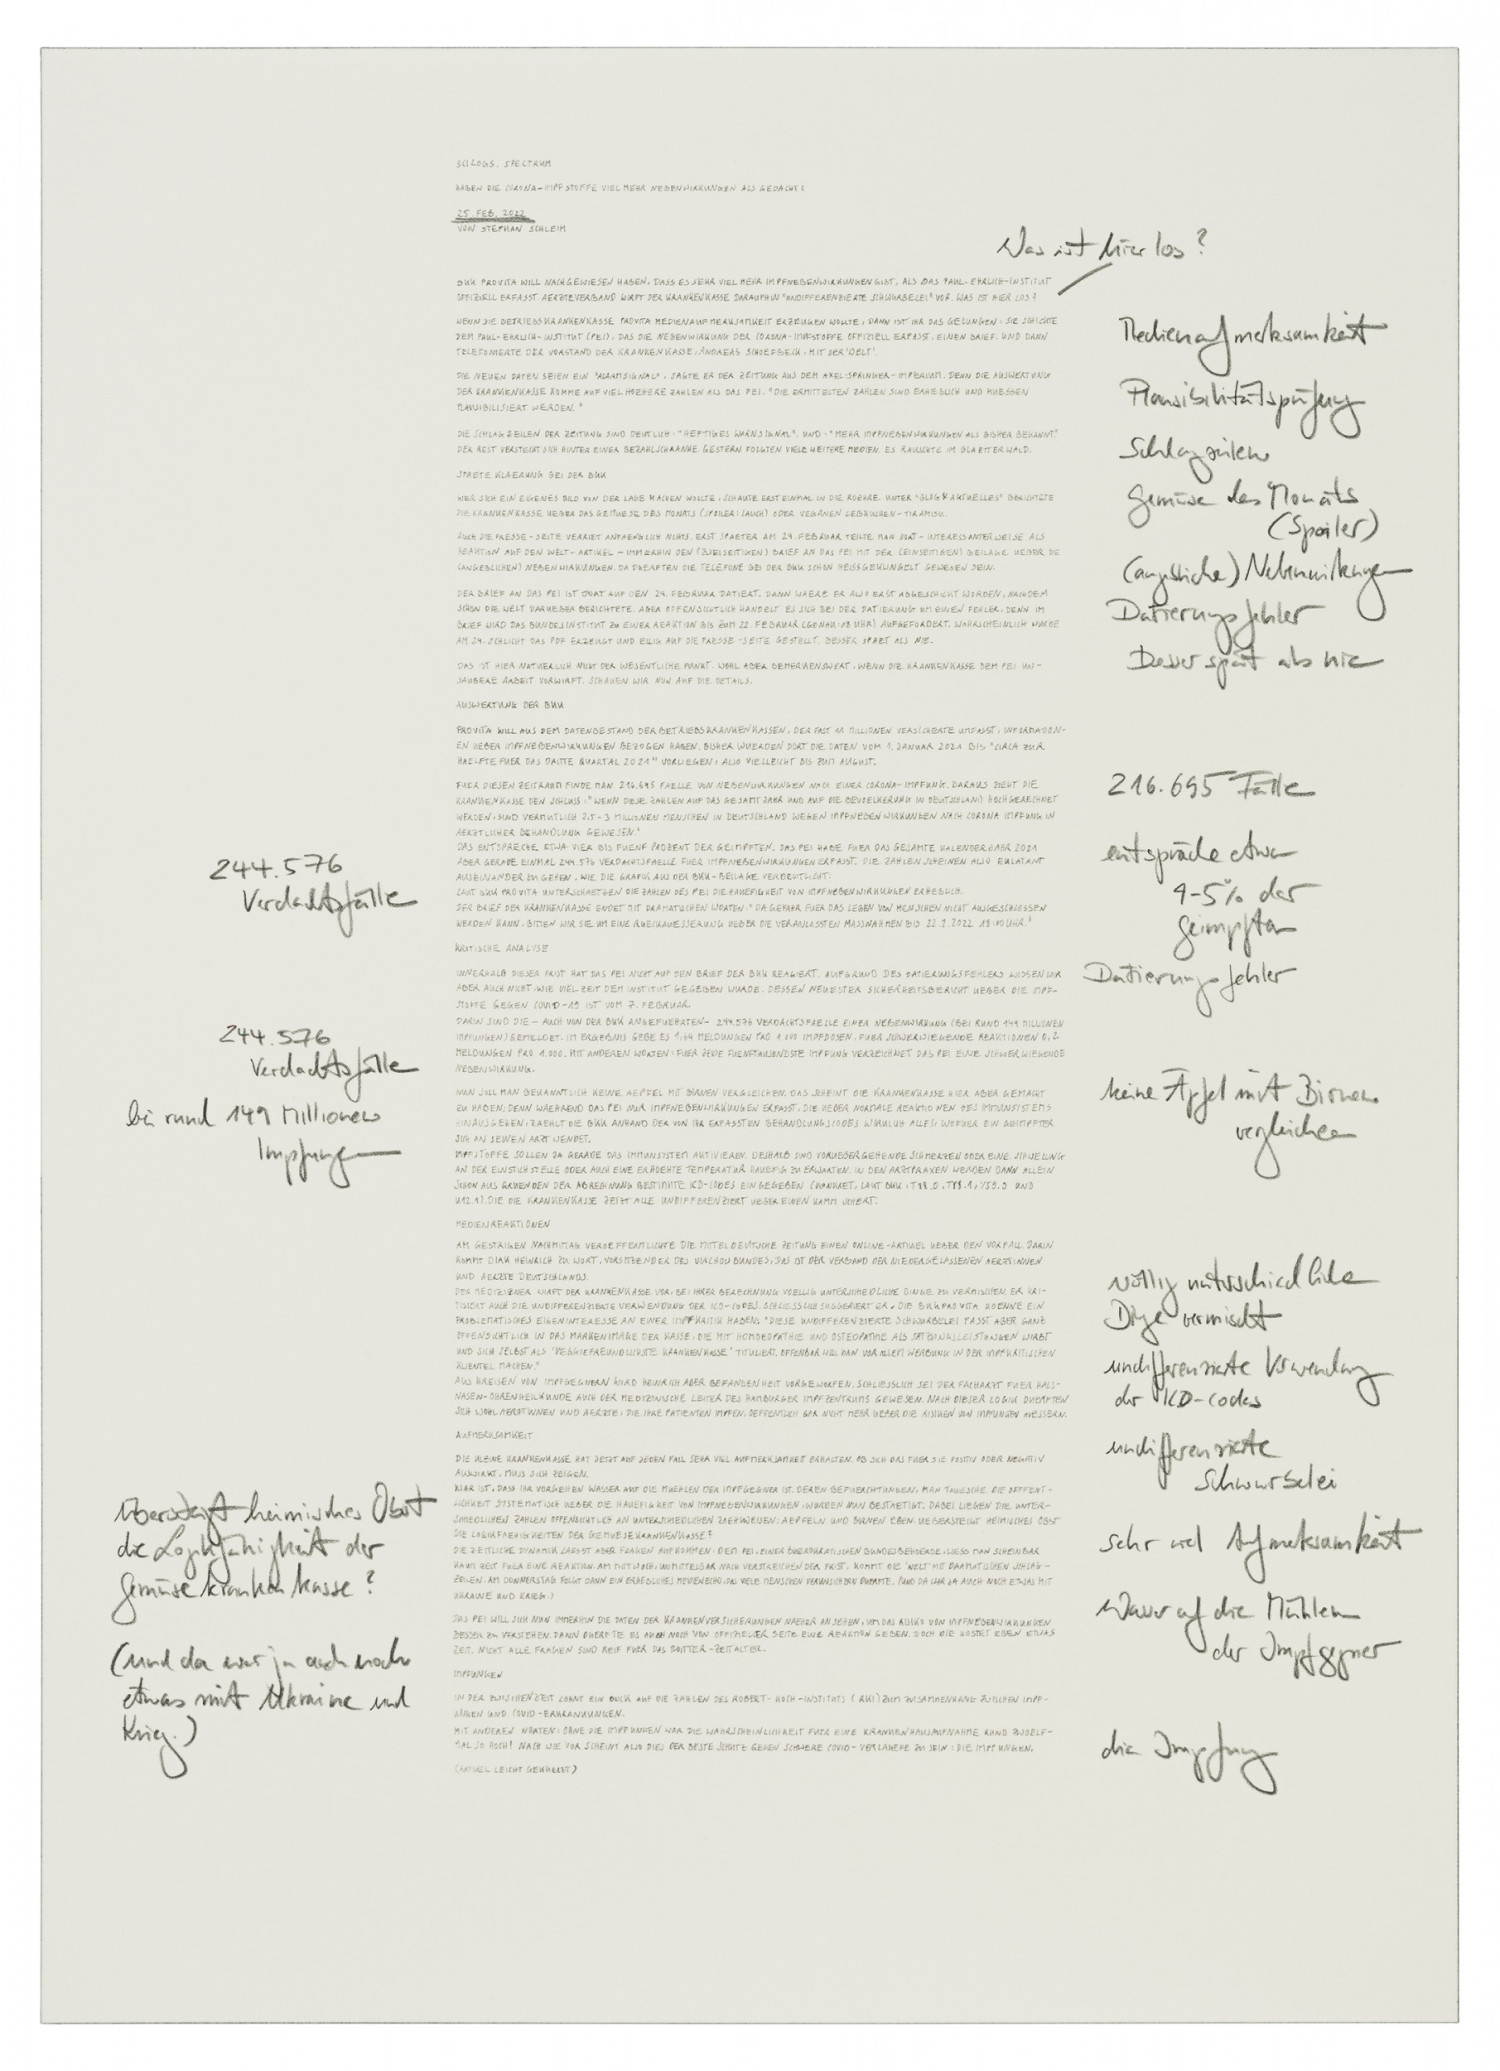 SCILOGS. SPECTRUM
HABEN DIE CORONA-IMPFSTOFFE VIEL MEHR NEBENWIRKUNGEN ALS GEDACHT?
25. FEB. 2022
VON STEPHAN SCHLEIM
Was ist hier los?
BKK PROVITA WILL NACHGEWIESEN HABEN, DASS ES SEHR VIEL MEHR IMPFNEBENWIRKUNGEN GIBT, ALS DAS PAUL-EHRLICH-INSTITUT
OFFIZIELL ERFASST. AERZTEVERBAND WIRFT DER KRANKENKASSE DARAUFHIN "UNDIFFERENZIERTE SCHWURBELEI" VOR. WAS IST HIER LOS?
WENN DIE BETRIEBSKRANKENKASSE PROVITA MEDIENAUFMERKSAMKEIT ERZEUGEN WOLLTE, DANN IST IHR DAS GELUNGEN: SIE SCHICKTE
DEM PAUL-EHRLICH-INSTITUT (PEI), DAS DIE NEBENWIRKUNG DER CORONA-IMPFSTOFFE OFFIZIELL ERFASST, EINEN BRIEF. UND DANN
TELEFONIERTE DER VORSTAND DER KRANKENKASSE, ANDREAS SCHOEFBECK, MIT DER 'WELT'.
Medienaufmerksamkeit
DIE NEUEN DATEN SEIEN EIN "ALARMSIGNAL", SAGTE ER DER ZEITUNG AUS DEM AXEL-SPRINGER-IMPERIUM. DENN DIE AUSWERTUNG
DER KRANKENKASSE KOMME AUF VIEL HOEHERE ZAHLEN ALS DAS PEI. "DIE ERMITTELTEN ZAHLEN SIND ERHEBLICH UND MUESSEN
PLAUSIBILISIERT WERDEN."
Plausibilitätsprüfung
DIE SCHLAGZEILEN DER ZEITUNG SIND DEUTLICH: "HEFTIGES WARNSIGNAL", UND: "MEHR IMPFNEBENWIRKUNGEN ALS BISHER BEKANNT."
DER REST VERSTECKT SICH HINTER EINER BEZAHLSCHRANKE. GESTERN FOLGTEN VIELE WEITERE MEDIEN. ES RAUSCHTE IM BLAETTERWALD.
Schlagzeilen
SPAETE KLAERUNG BEI DER BKK
WER SICH EIN EIGENES BILD VON DER LAGE MACHEN WOLLTE, SCHAUTE ERST EINMAL IN DIE ROEHRE. UNTER "BLOG & AKTUELLES" BERICHTETE
DIE KRANKENKASSE UEBER DAS GEMUESE DES MONATS (SPOILER: LAUCH) ODER VEGANEN LEBKUCHEN-TIRAMISU.
Gemüse des Monats
(Spoiler)
AUCH DIE PRESSE-SEITE VERRIET ANFAENGLICH NICHTS. ERST SPAETER AM 24. FEBRUAR TEILTE MAN DORT - INTERESSANTERWEISE ALS
REAKTION AUF DEN WELT-ARTIKEL - IMMERHIN DEN (ZWEISEITIGEN) BRIEF AN DAS PEI MIT DER (EINSEITIGEN) BEILAGE UEBER DIE
(ANGEBLICHEN) NEBENWIRKUNGEN. DA DUERFTEN DIE TELEFONE BEI DER BKK SCHON HEISSGEKLINGELT GEWESEN SEIN.
(angebliche) Nebenwirkungen
DER BRIEF AN DAS PEI IST DORT AUF DEN 24. FEBRUAR DATIERT. DANN WAERE ER ALSO ERST ABGESCHICKT WORDEN, NACHDEM
SCHON DIE WELT DARUEBER BERICHTETE. ABER OFFENSICHTLICH HANDELT ES SICH BEI DER DATIERUNG UM EINEN FEHLER, DENN IM
BRIEF WIRD DAS BUNDESINSTITUT ZU EINER REAKTION BIS ZUM 22. FEBRUAR (GENAU: 18 UHR) AUFGEFORDERT. WAHRSCHEINLICH WURDE
AM 24. SCHLICHT DAS PDF ERZEUGT UND EILIG AUF DIE PRESSE-SEITE GESTELLT. BESSER SPAET ALS NIE.
Datierungsfehler
Besser spät als nie
DAS IST HIER NATUERLICH NICHT DER WESENTLICHE PUNKT. WOHL ABER BEMERKENSWERT, WENN DIE KRANKENKASSE DEM PEI UN-
SAUBERE ARBEIT VORWIRFT. SCHAUEN WIR NUN AUF DIE DETAILS.
AUSWERTUNG DER BKK
PROVITA WILL AUS DEM DATENBESTAND DER BETRIEBSKRANKENKASSEN, DER FAST 11 MILLIONEN VERSICHERTE UMFASST, INFORMATION-
EN UEBER IMPFNEBENWIRKUNGEN BEZOGEN HABEN. BISHER WUERDEN DORT DIE DATEN VOM 1. JANUAR 2021 BIS "CIRCA ZUR
HAELFTE FUER DAS DRITTE QUARTAL 2021" VORLIEGEN; ALSO VIELLEICHT BIS ZUM AUGUST.
FUER DIESEN ZEITRAUM FINDE MAN 216.695 FAELLE VON NEBENWIRKUNGEN NACH EINER CORONA-IMPFUNG. DARAUS ZIEHT DIE
KRANKENKASSE DEN SCHLUSS: "WENN DIESE ZAHLEN AUF DAS GESAMTJAHR UND AUF DIE BEVOELKERUNG IN DEUTSCHLAND HOCHGERECHNET
WERDEN, SIND VERMUTLICH 2,5-3 MILLIONEN MENSCHEN IN DEUTSCHLAND WEGEN IMPFNEBENWIRKUNGEN NACH CORONA IMPFUNG IN
AERZTLICHER BEHANDLUNG GEWESEN."
216.695 Fälle
DAS ENTSPRECHE ETWA VIER BIS FUENF PROZENT DER GEIMPFTEN. DAS PEI HABE FUER DAS GESAMTE KALENDERJAHR 2021
ABER GERADE EINMAL 244.576 VERDACHTSFAELLE FUER IMPFNEBENWIRKUNGEN ERFASST. DIE ZAHLEN SCHEINEN ALSO EKLATANT
AUSEINANDER ZU GEHEN, WIE DIE GRAFIK AUS DER BKK-BEILAGE VERDEUTLICHT:
LAUT BKK PROVITA UNTERSCHAETZEN DIE ZAHLEN DES PEI DIE HAEUFIGKEIT VON IMPFNEBENWIRKUNGEN ERHEBLICH.
DER BRIEF DER KRANKENKASSE ENDET MIT DRAMATISCHEN WORTEN: "DA GEFAHR FUER DAS LEBEN VON MENSCHEN NICHT AUSGESCHLOSSEN
WERDEN KANN, BITTEN WIR SIE UM EINE RUECKAEUSSERUNG UEBER DIE VERANLASSTEN MASSNAHMEN BIS 22.2.2022 18:00 UHR."
244.576
Verdachtsfälle
entspräche etwa
4-5% der
geimpften
KRITISCHE ANALYSE
INNERHALB DIESER FRIST HAT DAS PEI NICHT AUF DEN BRIEF DER BKK REAGIERT. AUFGRUND DES DATIERUNGSFEHLERS WISSEN WIR
ABER AUCH NICHT, WIE VIEL ZEIT DEM INSTITUT GEGEBEN WURDE. DESSEN NEUESTER SICHERHEITSBERICHT UEBER DIE IMPF-
STOFFE GEGEN COVID-19 IST VOM 7. FEBRUAR.
Datierungsfehler
DARIN SIND DIE - AUCH VON DER BKK ANGEFUEHRTEN - 244.576 VERDACHTSFAELLE EINER NEBENWIRKUNG (BEI RUND 149 MILLIONEN
IMPFUNGEN) GEMELDET. IM ERGEBNIS GEBE ES 1,64 MELDUNGEN PRO 1.000 IMPFDOSEN, FUER SCHWERWIEGENDE REAKTIONEN 0,2
MELDUNGEN PRO 1.000. MIT ANDEREN WORTEN: FUER JEDE FUENFTAUSENDSTE IMPFUNG VERZEICHNET DAS PEI EINE SCHWERWIEGENDE
NEBENWIRKUNG.
244.576
Verdachtsfälle
bei rund 149 Millionen
Impfungen
MAN SOLL MAN BEKANNTLICH KEINE AEPFEL MIT BIRNEN VERGLEICHEN. DAS SCHEINT DIE KRANKENKASSE HIER ABER GEMACHT
ZU HABEN: DENN WAEHREND DAS PEI NUR IMPFNEBENWIRKUNGEN ERFASST, DIE UEBER NORMALE REAKTIONEN DES IMMUNSYSTEMS
HINAUSGEHEN, ZAEHLT DIE BKK ANHAND DER VON IHR ERFASSTEN BEHANDLUNGSCODES WIRKLICH ALLES, WORUEBER EIN GEIMPFTER
SICH AN SEINEN ARZT WENDET.
keine Äpfel mit Birnen
vergleichen
IMPFSTOFFE SOLLEN JA GERADE DAS IMMUNSYSTEM AKTIVIEREN. DESHALB SIND VORUEBERGEHENDE SCHMERZEN ODER EINE SCHWELLUNG
AN DER EINSTICHSTELLE ODER AUCH EINE ERHOEHTE TEMPERATUR HAEUFIG ZU ERWARTEN. IN DEN ARZTPRAXEN WERDEN DANN ALLEIN
SCHON AUS GRUENDEN DER ABRECHNUNG BESTIMMTE ICD-CODES EINGEGEBEN (KONKRET, LAUT BKK: T88.0, T88.1, Y59.9 UND
U12.9), DIE DIE KRANKENKASSE JETZT ALLE UNDIFFERENZIERT UEBER EINEN KAMM SCHERT.
MEDIENREAKTIONEN
AM GESTRIGEN NACHMITTAG VEROEFFENTLICHTE DIE MITTELDEUTSCHE ZEITUNG EINEN ONLINE-ARTIKEL UEBER DEN VORFALL. DARIN
KOMMT DIRK HEINRICH ZU WORT, VORSITZENDER DES VIRCHOWBUNDES; DAS IST DER VERBAND DER NIEDERGELASSENEN AERZTINNEN
UND AERZTE DEUTSCHLANDS.
DER MEDIZINER WIRFT DER KRANKENKASSE VOR, BEI IHRER BERECHNUNG VOELLIG UNTERSCHIEDLICHE DINGE ZU VERMISCHEN. ER KRI-
TISIERT AUCH DIE UNDIFFERENZIERTE VERWENDUNG DER ICD-CODES. SCHLIESSLICH SUGGERIERT ER, DIE BKK PROVITA KOENNE EIN
PROBLEMATISCHES EIGENINTERESSE AN EINER IMPFKRITIK HABEN: "DIESE UNDIFFERENZIERTE SCHWURBELEI PASST ABER GANZ
OFFENSICHTLICH IN DAS MARKENIMAGE DER KASSE, DIE MIT HOMOEOPATHIE UND OSTEOPATHIE ALS SATZUNGSLEISTUNGEN WIRBT
UND SICH SELBST ALS 'VEGGIEFREUNDLICHSTE KRANKENKASSE' TITULIERT. OFFENBAR WILL MAN VOR ALLEM WERBUNG IN DER IMPFKRITISCHEN
KLIENTEL MACHEN."
völlig unterschiedliche
Dinge vermischt
undifferenzierte Verwendung
der ICD-codes
AUS KREISEN VON IMPFGEGNERN WIRD HEINRICH ABER BEFANGENHEIT VORGEWORFEN. SCHLIESSLICH SEI DER FACHARZT FUER HALS-
NASEN-OHRENHEILKUNDE AUCH DER MEDIZINISCHE LEITER DES HAMBURGER IMPFZENTRUMS GEWESEN. NACH DIESER LOGIK DUERFTEN
SICH WOHL AERZTINNEN UND AERZTE, DIE IHRE PATIENTEN IMPFEN, OEFFENTLICH GAR NICHT MEHR UEBER DIE RISIKEN VON IMPFUNGEN AEUSSERN.
AUFMERKSAMKEIT
undifferenzierte
Schwurbelei
DIE KLEINE KRANKENKASSE HAT JETZT AUF JEDEN FALL SEHR VIEL AUFMERKSAMKEIT ERHALTEN. OB SICH DAS FUER SIE POSITIV ODER NEGATIV
AUSWIRKT, MUSS SICH ZEIGEN.
KLAR IST, DASS IHR VORGEHEN WASSER AUF DIE MUEHLEN DER IMPFGEGNER IST. DEREN BEFUERCHTUNGEN, MAN TAEUSCHE DIE OEFFENT-
LICHKEIT SYSTEMATISCH UEBER DIE HAEUFIGKEIT VON IMPFNEBENWIRKUNGEN, WUERDEN NUN BESTAETIGT. DABEI LIEGEN DIE UNTER-
SCHIEDLICHEN ZAHLEN OFFENSICHTLICH AN UNTERSCHIEDLICHEN ZAEHLWEISEN: AEPFELN UND BIRNEN EBEN. UEBERSTEIGT HEIMISCHES OBST
DIE LOGIKFAEHIGKEITEN DER GEMUESEKRANKENKASSE?
übersteigt heimisches Obst
die Logikfähigkeit der
Gemüsekrankenkasse?
sehr viel Aufmerksamkeit
DIE ZEITLICHE DYNAMIK LAESST ABER FRAGEN AUFKOMMEN: DEM PEI, EINER BUEROKRATISCHEN BUNDESBEHOERDE, LIESS MAN SCHEINBAR
KAUM ZEIT FUER EINE REAKTION. AM MITTWOCH, UNMITTELBAR NACH VERSTREICHEN DER FRIST, KOMMT DIE 'WELT' MIT DRAMATISCHEN SCHLAG-
ZEILEN. AM DONNERSTAG FOLGT DANN EIN ERHEBLICHES MEDIENECHO, DAS VIELE MENSCHEN VERUNSICHERN DUERFTE. (UND DA WAR JA AUCH NOCH ETWAS MIT
UKRAINE UND KRIEG.)
Wasser auf die Mühlen
der Impfgegner
DAS PEI WILL SICH NUN IMMERHIN DIE DATEN DER KRANKENVERSICHERUNGEN NAEHER ANSEHEN, UM DAS RISIKO VON IMPFNEBENWIRKUNGEN
BESSER ZU VERSTEHEN. DANN DUERFTE ES AUCH NOCH VON OFFIZIELLER SEITE EINE REAKTION GEBEN. DOCH DIE KOSTET EBEN ETWAS
ZEIT. NICHT ALLE FRAGEN SIND REIF FUER DAS TWITTER-ZEITALTER.
(und da war ja auch noch
etwas mit Ukraine und
Krieg.)
IMPFUNGEN
IN DER ZWISCHENZEIT LOHNT EIN BLICK AUF DIE ZAHLEN DES ROBERT-KOCH-INSTITUTS (RKI) ZUM ZUSAMMENHANG ZWISCHEN IMPF-
UNGEN UND COVID-ERKRANKUNGEN.
MIT ANDEREN WORTEN: OHNE DIE IMPFUNGEN WAR DIE WAHRSCHEINLICHKEIT FUER EINE KRANKENHAUSAUFNAHME RUND ZWOELF-
MAL SO HOCH! NACH WIE VOR SCHEINT ALSO DIES DER BESTE SCHUTZ GEGEN SCHWERE COVID-VERLAEUFE ZU SEIN: DIE IMPFUNGEN.
die Impfung
(ARTIKEL LEICHT GEKUERZT)